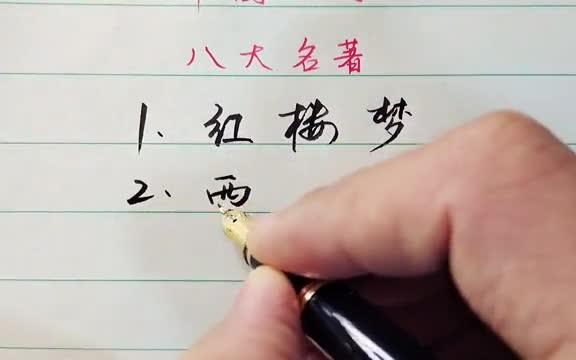 八大名著
1、红楼梦
2、西